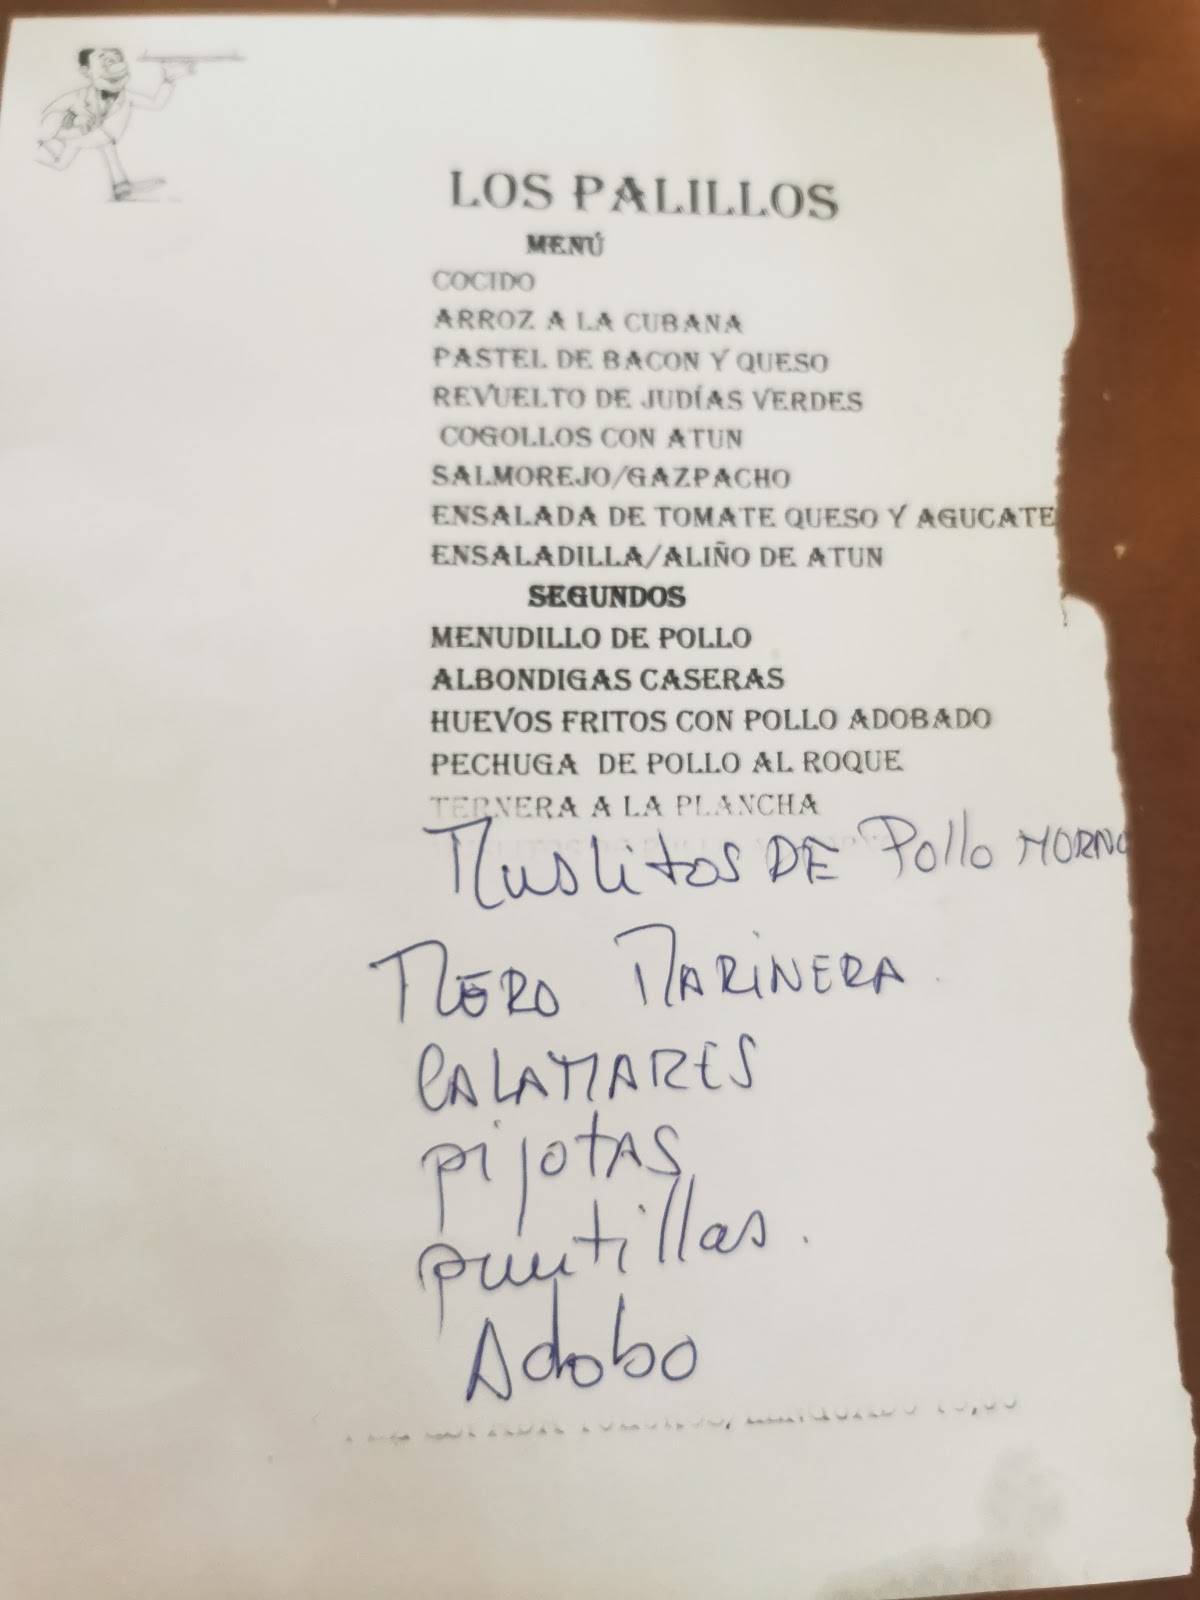 LOS PALILLOS
MENÚ
COCIDO
ARROZ A LA CUBANA
PASTEL DE BACON Y QUESO
REVUELTO DE JUDÍAS VERDES
COGOLLOS CON ATUN
SALMOREJO/GAZPACHO
ENSALADA DE TOMATE QUESO Y AGUCATE
ENSALADILLA/ALIÑO DE ATUN
SEGUNDOS
MENUDILLO DE POLLO
ALBONDIGAS CASERAS
HUEVOS FRITOS CON POLLO ADOBADO
PECHUGA DE POLLO AL ROQUE
TERNERA A LA PLANCHA
MUSLITOS DE Pollo HORNO
MERO MARINERA
CALAMARES
pijotAS
puntillas.
Adobo